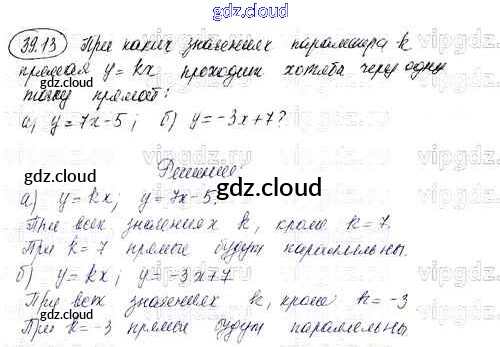 gdz.cloud
39.13 При каких значениях параметра k
прямая y = kx проходит хотя бы через одну
точку прямой:
а) y = 7x - 5; б) y = -3x + 7?
Решение:
а) y = kx; y = 7x - 5.
При всех значениях k, кроме k = 7.
При k = 7 прямые будут параллельны.
б) y = kx; y = -3x + 7
При всех значениях k, кроме k = -3
При k = -3 прямые будут параллельны.
gdz.cloud
gdz.cloud
gdz.cloud
gdz.cloud
gdz.cloud
gdz.cloud
gdz.cloud